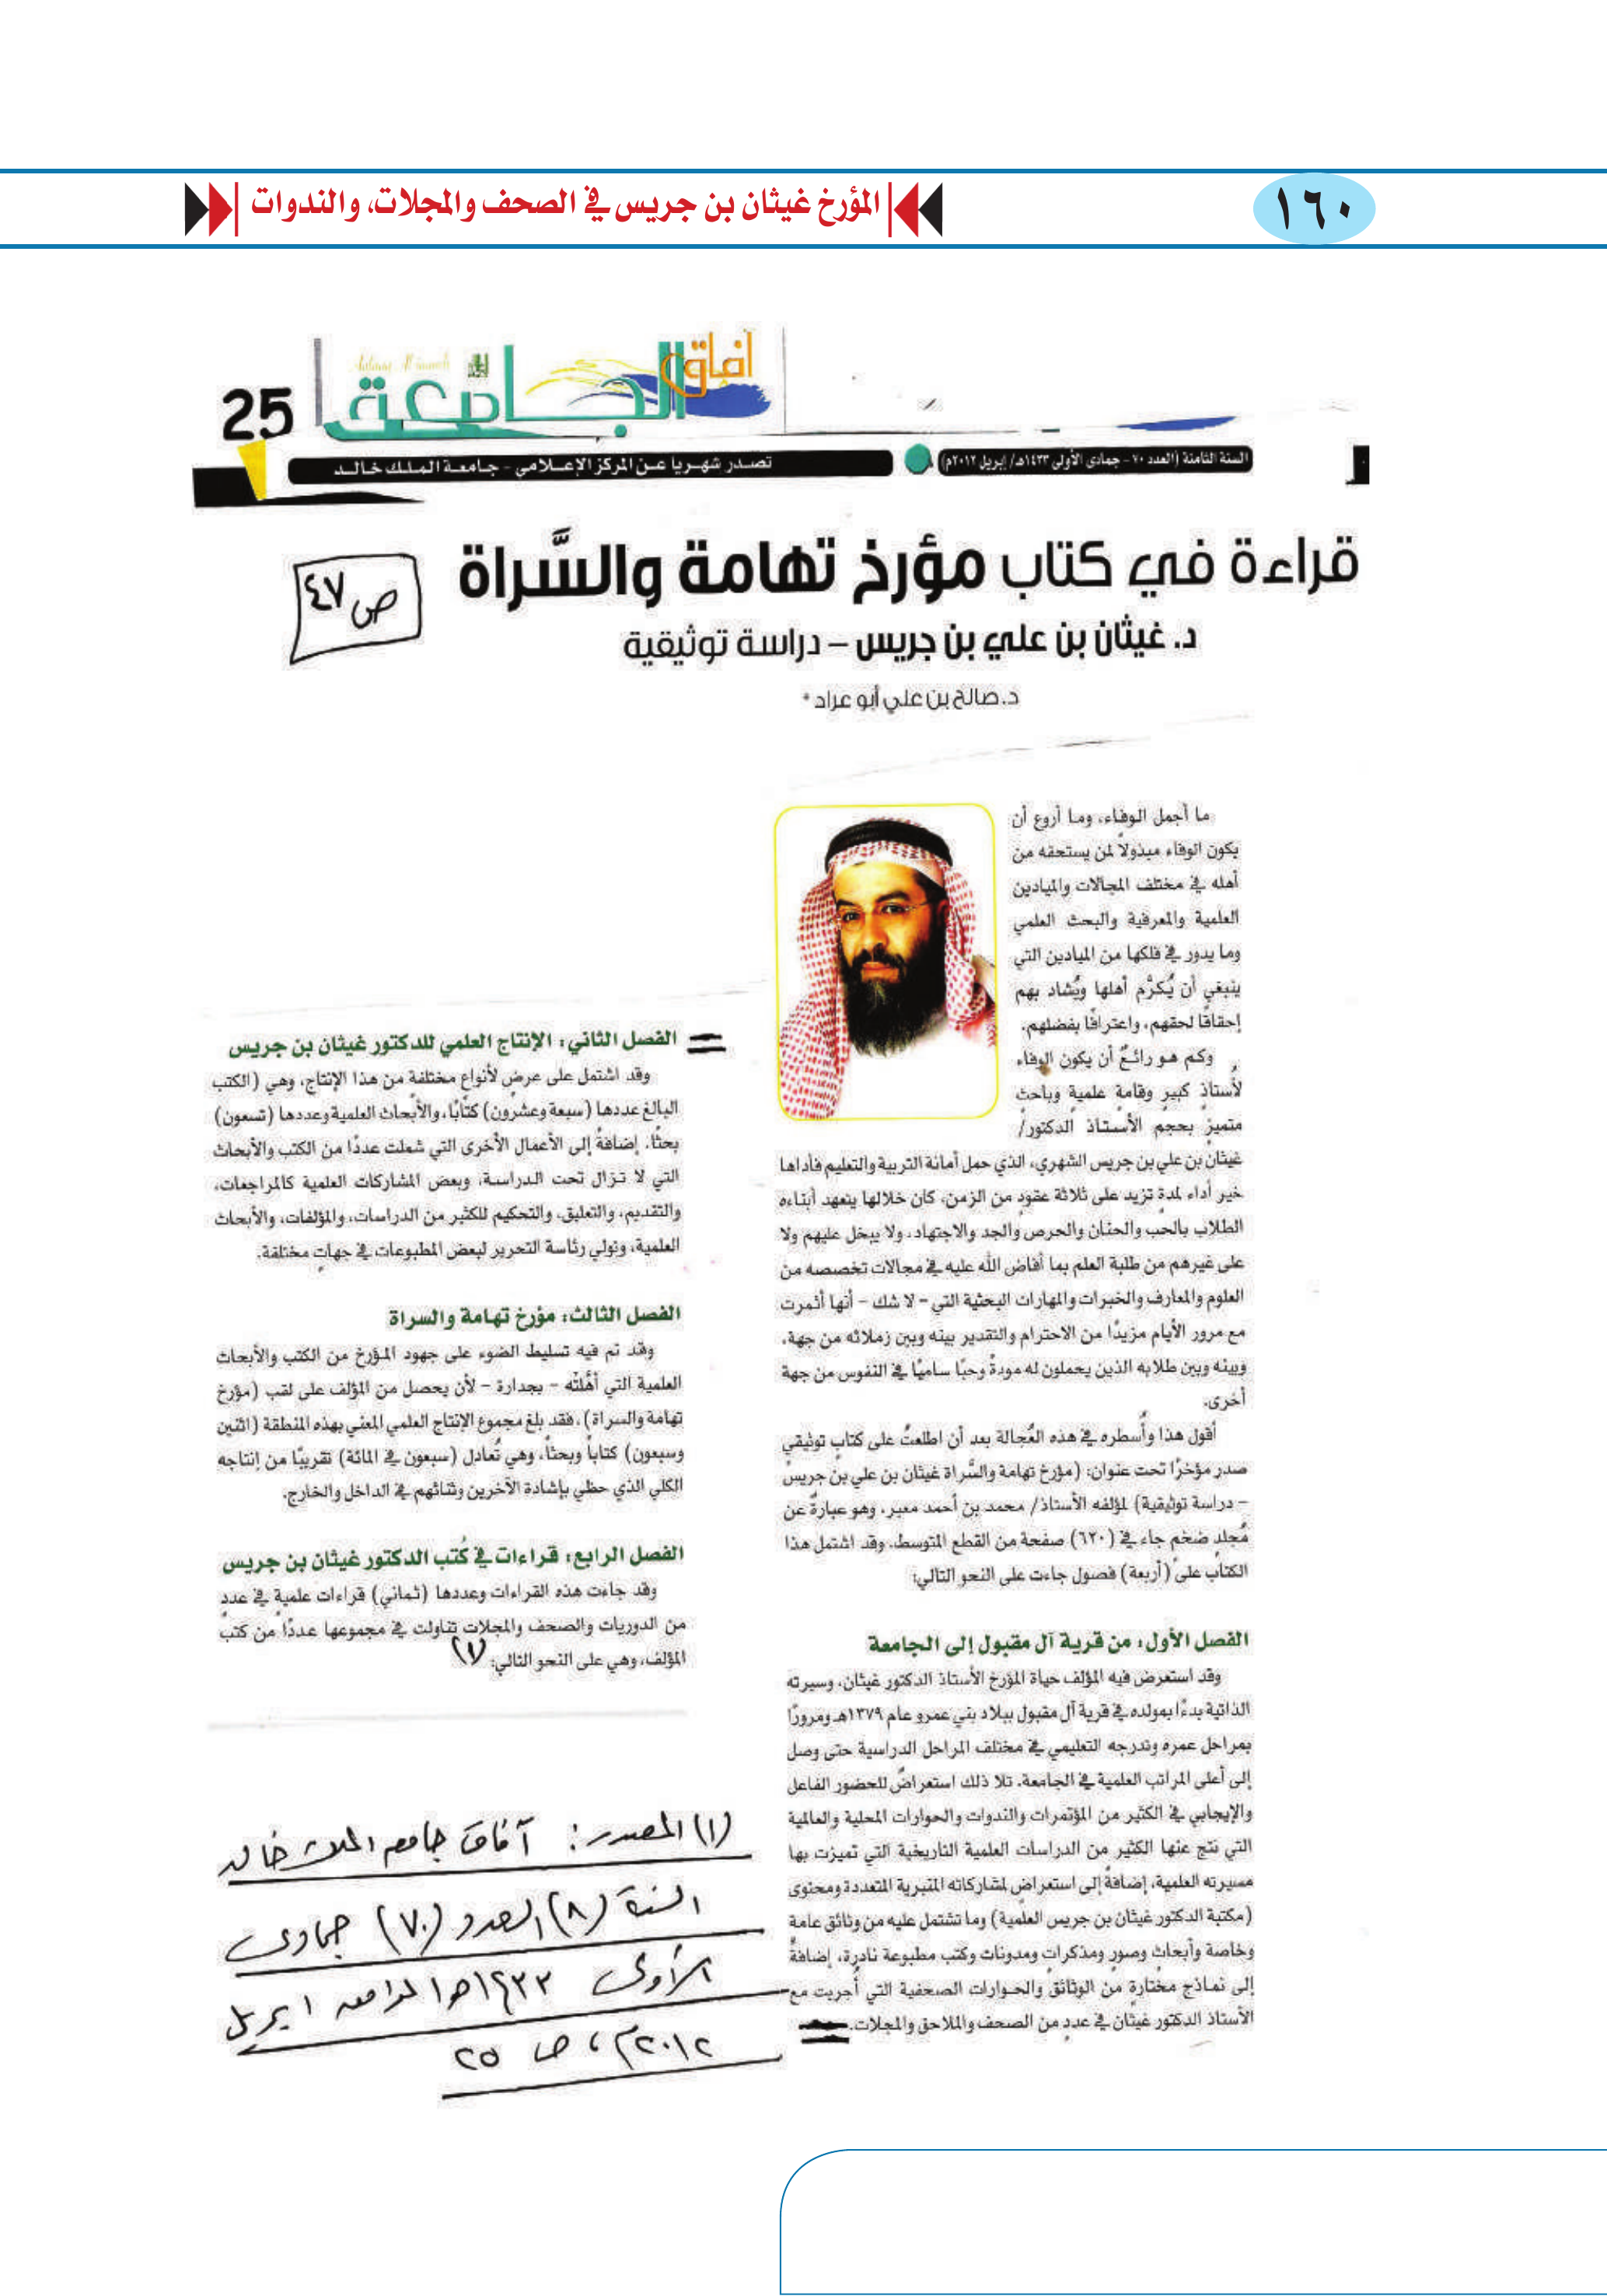 ١٦٠
المؤرخ غيثان بن جريس في الصحف والمجلات، والندوات
آفاق الجامعة
25
السنة الثامنة (العدد ٧٠ - جمادى الأولى ١٤٣٣هـ/ إبريل ٢٠١٢م)
تصدر شهريا عن المركز الإعلامي - جامعة الملك خالد
قراءة في كتاب مؤرخ تهامة والسَّراة
ص ٤٧
د. غيثان بن علي بن جريس – دراسة توثيقية
د. صالح بن علي أبو عراد *
ما أجمل الوفاء، وما أروع أن
يكون الوفاء مبذولاً لمن يستحقه من
أهله في مختلف المجالات والميادين
العلمية والمعرفية والبحث العلمي
وما يدور في فلكها من الميادين التي
ينبغي أن يُكرَّم أهلها ويُشاد بهم
إحقاقًا لحقهم، واعترافًا بفضلهم.
وكم هو رائعٌ أن يكون الوفاء
لأستاذٍ كبيرٍ وقامةٍ علميةٍ وباحث
متميزٍ بحجم الأستاذ الدكتور/
غيثان بن علي بن جريس الشهري، الذي حمل أمانة التربية والتعليم فأداها
خير أداء لمدةٍ تزيد على ثلاثة عقودٍ من الزمن، كان خلالها يتعهد أبناءه
الطلاب بالحب والحنان والحرص والجد والاجتهاد، ولا يبخل عليهم ولا
على غيرهم من طلبة العلم بما أفاض الله عليه في مجالات تخصصه من
العلوم والمعارف والخبرات والمهارات البحثية التي - لا شك - أنها أثمرت
مع مرور الأيام مزيدًا من الاحترام والتقدير بينه وبين زملائه من جهة،
وبينه وبين طلابه الذين يحملون له مودةً وحبًا ساميًا في النفوس من جهة
أخرى.
أقول هذا وأُسطره في هذه العُجالة بعد أن اطلعتُ على كتابٍ توثيقيٍ
صدر مؤخرًا تحت عنوان: (مؤرخ تهامة والسَّراة غيثان بن علي بن جريس
- دراسة توثيقية) لمؤلفه الأستاذ/ محمد بن أحمد معبر، وهو عبارةٌ عن
مُجلدٍ ضخم جاء في (٦٢٠) صفحة من القطع المتوسط، وقد اشتمل هذا
الكتاب على (أربعة) فصول جاءت على النحو التالي:
الفصل الأول: من قرية آل مقبول إلى الجامعة
وقد استعرض فيه المؤلف حياة المؤرخ الأستاذ الدكتور غيثان، وسيرته
الذاتية بدءًا بمولده في قرية آل مقبول ببلاد بني عمرو عام ١٣٧٩هـ ومرورًا
بمراحل عمره وتدرجه التعليمي في مختلف المراحل الدراسية حتى وصل
إلى أعلى المراتب العلمية في الجامعة. تلا ذلك استعراضٌ للحضور الفاعل
والإيجابي في الكثير من المؤتمرات والندوات والحوارات المحلية والعالمية
التي نتج عنها الكثير من الدراسات العلمية التاريخية التي تميزت بها
مسيرته العلمية، إضافةً إلى استعراضٍ لمشاركاته المنبرية المتعددة ومحتوى
(مكتبة الدكتور غيثان بن جريس العلمية) وما تشتمل عليه من وثائق عامة
وخاصة وأبحاثٍ وصورٍ ومذكراتٍ ومدونات وكتب مطبوعة نادرة، إضافةً
إلى نماذج مختارةٍ من الوثائق والحوارات الصحفية التي أُجريت مع
الأستاذ الدكتور غيثان في عددٍ من الصحف والملاحق والمجلات.
الفصل الثاني: الإنتاج العلمي للدكتور غيثان بن جريس
وقد اشتمل على عرضٍ لأنواعٍ مختلفةٍ من هذا الإنتاج، وهي (الكتب
البالغ عددها (سبعة وعشرون) كتابًا، والأبحاث العلمية وعددها (تسعون)
بحثًا. إضافةً إلى الأعمال الأخرى التي شملت عددًا من الكتب والأبحاث
التي لا تزال تحت الدراسة، وبعض المشاركات العلمية كالمراجعات،
والتقديم، والتعليق، والتحكيم للكثير من الدراسات، والمؤلفات، والأبحاث
العلمية، وتولي رئاسة التحرير لبعض المطبوعات في جهاتٍ مختلفة.
الفصل الثالث: مؤرخ تهامة والسراة
وقد تم فيه تسليط الضوء على جهود المؤرخ من الكتب والأبحاث
العلمية التي أهَّلتْه - بجدارة - لأن يحصل من المؤلف على لقب (مؤرخ
تهامة والسراة)، فقد بلغ مجموع الإنتاج العلمي المعني بهذه المنطقة (اثنين
وسبعون) كتاباً وبحثاً، وهي تُعادل (سبعون في المائة) تقريبًا من إنتاجه
الكلي الذي حظي بإشادة الآخرين وثنائهم في الداخل والخارج.
الفصل الرابع: قراءات في كُتب الدكتور غيثان بن جريس
وقد جاءت هذه القراءات وعددها (ثماني) قراءات علميةٍ في عددٍ
من الدوريات والصحف والمجلات تناولت في مجموعها عددًا من كتب
المؤلف، وهي على النحو التالي: (١)
(١) المصدر: آفاق جامعة الملك خالد
السنة (٨) العدد (٧٠) جمادى
الأولى ١٤٣٣هـ الموافق ابريل
٢٠١٢م، ص ٢٥